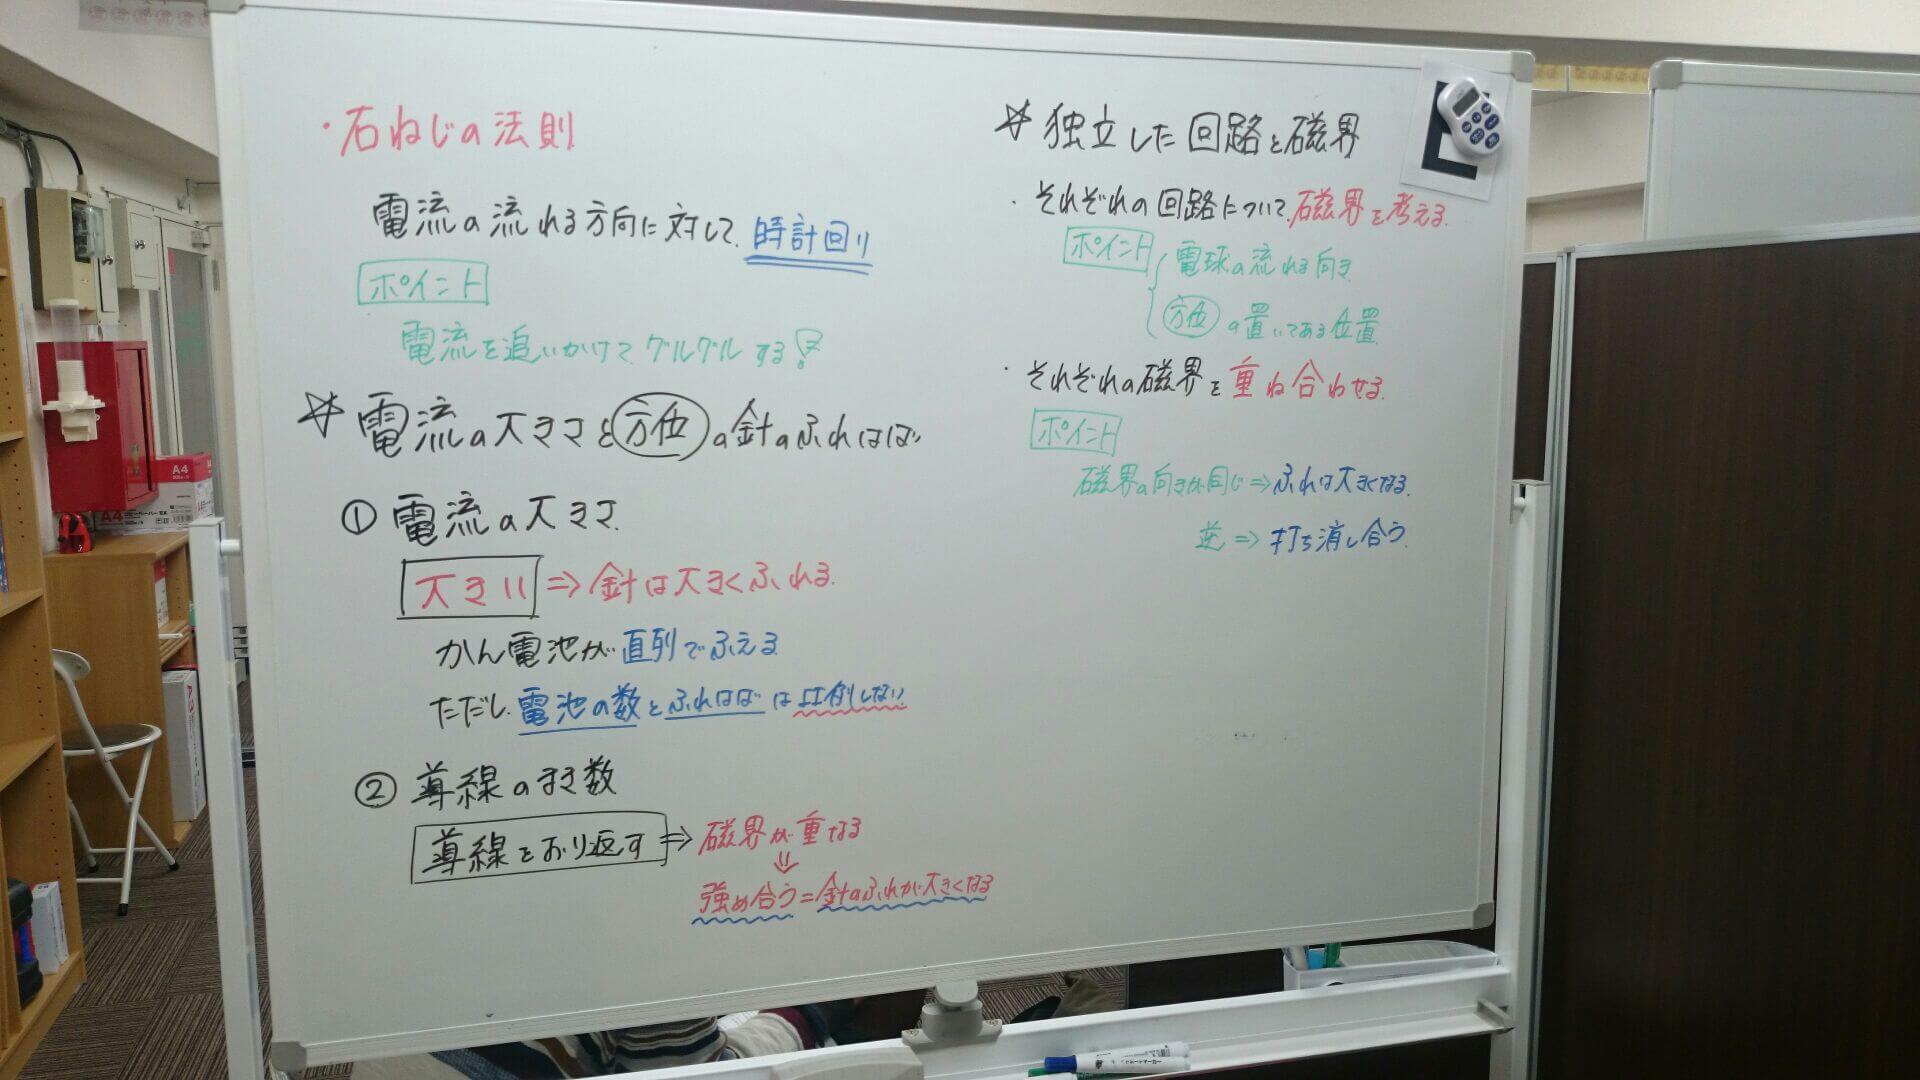 ・右ねじの法則
電流の流れる方向に対して、時計回り
ポイント
電流を追いかけて グルグル する!
☆電流の大きさと方位の針のふれはば
① 電流の大きさ
大きい ⇒ 針は大きくふれる.
かん電池が直列でふえる
ただし、電池の数とふれはばは比例しない.
② 導線のまき数
導線をおり返す ⇒ 磁界が重なる
⇓
強め合う=針のふれが大きくなる
☆独立した回路と磁界
・それぞれの回路について、磁界を考える.
ポイント 電球の流れる向き
方位の置いてある位置
・それぞれの磁界を重ね合わせる.
ポイント
磁界の向きが同じ⇒ふれは大きくなる.
逆⇒打ち消し合う.
A4
A4